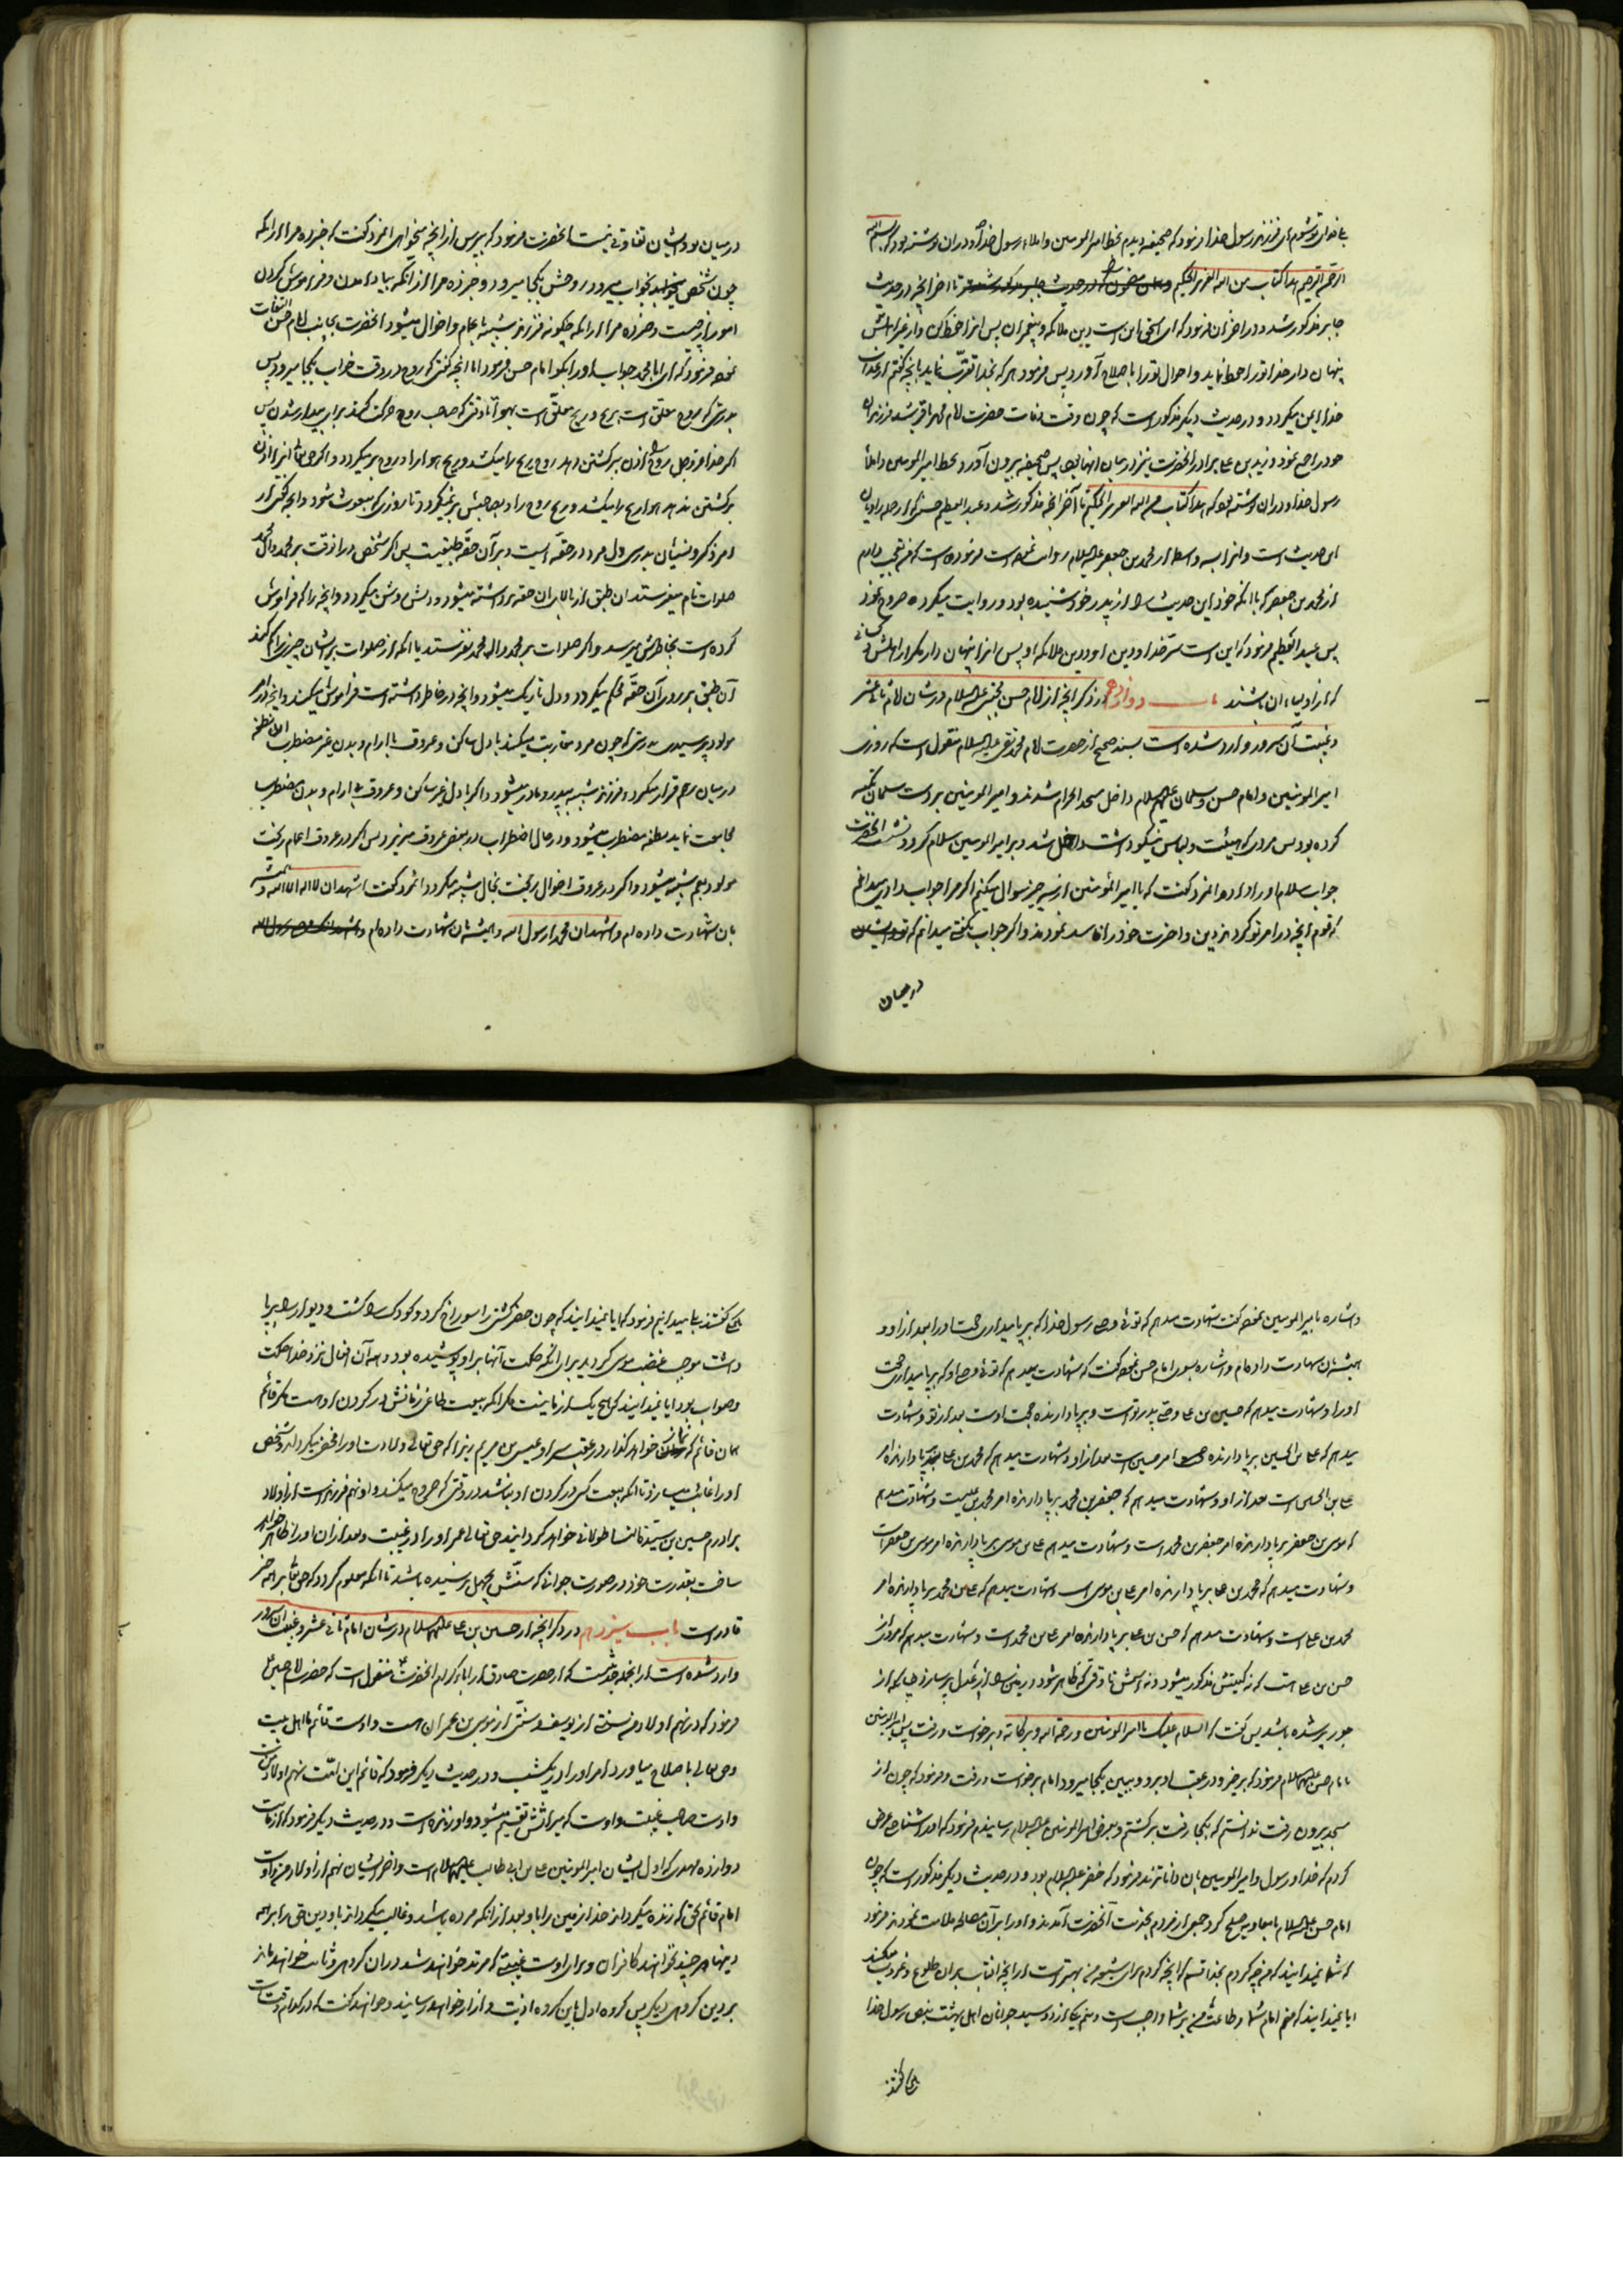 بلی فدای تو شوم ای فرزند رسول خدا فرمود که صحیفه دیدم بخط امیر المومنین و املاء رسول خدا و در ان نوشته بود که بسم الله
الرحمن الرحیم هذا کتاب من الله العزیز الحکیم تا اخر انچه در حدیث
جابر مذکور شد و در اخر ان فرمود که ای اسحق این است دین ملائکه و پیغمبران پس انرا حفظ کن و از غیر اهلش
پنهان دار خدا تو را حفظ نماید و احوال تو را باصلاح آورد پس فرمود هر که بخدا تقرب نماید بانچه گفتم از عذاب
خدا ایمن میگردد و در حدیث دیگر مذکور است که چون وقت وفات حضرت امام محمد باقر شد فرزندان
خود را جمع نمود و زید بن علی برادر انحضرت نیز در میان انها بود پس صحیفه بیرون آورد بخط امیر المومنین و املاء
رسول خدا و در ان نوشته بود که هذا کتاب من الله العزیز الحکیم تا آخر انچه مذکور شد و عبد العظیم حسنی که از جمله راویان
این حدیث است و انرا به واسطه از محمد بن جعفر علیه السلام روایت نموده است فرموده است که من تعجب دارم
از محمد بن جعفر که با انکه خود این حدیث را از پدر خود شنیده بود و روایت میکرد خروج نمود
پس عبد العظیم فرمود که این است سر خدا و دین او و دین ملائکه او پس انرا پنهان دار مگر از اهلش و کسانی
که از اولیاء ان باشند باب دوازدهم در ذکر انچه از امام حسن مجتبی علیه السلام در شان امام ثانی عشر
و غیبت آن سرور وارد شده است بسند صحیح از حضرت امام محمد تقی علیه السلام منقول است که روزی
امیر المومنین و امام حسن و سلمان علیهم السلام داخل مسجد الحرام شدند و امیر المومنین بر دست سلمان تکیه
کرده بود پس مردی که هیئت و لباس نیکو داشت داخل شد و بر امیر المومنین سلام کرد و نشست انحضرت
جواب سلام او را داد و انمرد گفت که یا امیر المؤمنین از سه چیز سوال میکنم اگر مرا جواب دادی میدانم
که قوم انچه در امر تو کردند دین و اخرت خود را فاسد نمودند و اگر جواب نگفتی میدانم که
درمیان
درمیان تو و ایشان تفاوتی نیست انحضرت فرمود که بپرس از انچه میخواهی انمرد گفت که خبر ده مرا از انکه
چون شخص بخواب میرود روحش بکجا میرود و خبر ده مرا از انکه بیاد آمدن و فراموش کردن
امور از چیست و خبر ده مرا از انکه چگونه فرزند شبیه باعمام و اخوال میشود انحضرت بجانب امام حسن التفات
نموده فرمود که ای ابا محمد جواب او را بگو امام حسن فرمود اما انچه گفتی که روح در وقت خواب بکجا میرود پس
بدرستی که روح معلق است بریح و ریح معلق است بهوا تا وقتی که صاحب روح حرکت کند برای بیدار شدن پس
اگر خدا عز و جل روح را اذن برگشتن دهد روح ریح را میکشد و ریح هوا را و روح بر میگردد و اگر حق تعالی انرا اذن
برگشتن ندهد هوا ریح را میکشد و ریح روح را و بصاحبش بر نمیگردد تا روزی که مبعوث شود و انچه گفتی از
امر ذکر و نسیان بدرستی دل مرد در حقه ایست و بر آن حقه طبقیست پس اگر شخص در انوقت بر محمد و آل محمد
صلوات تام میفرستد ان طبق از بالای ان حقه برداشته میشود و دلش روشن میگردد و انچه را که فراموش
کرده است بخاطرش میرسد و اگر صلوات بر محمد و اله محمد نفرستد یا انکه از صلوات بر ایشان چیزی را کم کند
آن طبق بر روی آن حقه محکم میگردد و دل تاریک میشود و انچه در خاطر داشته است فراموش میکند و انچه از امر
مولود پرسیدی بدرستی که چون مرد مقاربت میکند با دل ساکن و عروق با آرام و بدن غیر مضطرب ان نطفه
در میان رحم قرار میگیرد و فرزند شبیه بپدر و مادر میشود و اگر با دل غیر ساکن و عروق بی ارام و بدن مضطرب
مجامعت نماید نطفه مضطرب میشود و در حال اضطراب در بعضی عروق میریزد پس اگر در عروق اعمام ریخت
مولود بعم شبیه میشود و اگر در عروق اخوال ریخت بخال شبیه میگردد انمرد گفت اشهد ان لا اله الا الله و همیشه
بان شهادت داده ام و اشهد ان محمدا رسول الله و همیشه بان شهادت داده ام
و اشاره بامیر المومنین نموده گفت شهادت میدهم که توئی وصی رسول خدا که بر پا میداری حجت او را بعد از او و
همیشه بان شهادت داده ام و اشاره بسوی امام حسن نموده گفت که شهادت میدهم که توئی وصی او که بر پا میداری حجت
او را و شهادت میدهم که حسین بن علی وصی پدر تو است و بر پا دارنده حجت اوست بعد از تو و شهادت
میدهم که علی بن الحسین بر پا دارنده امر حسین است بعد از او و شهادت میدهم که محمد بن علی بر پا دارنده امر
علی بن الحسین است بعد از او و شهادت میدهم که جعفر بن محمد بر پا دارنده امر محمد بن علیست و شهادت میدهم
که موسی بن جعفر بر پا دارنده امر جعفر بن محمد است و شهادت میدهم علی بن موسی بر پا دارنده امر موسی بن جعفر است
و شهادت میدهم که محمد بن علی بر پا دارنده امر علی بن موسی است و شهادت میدهم که علی بن محمد بر پا دارنده امر
محمد بن علی است و شهادت میدهم که حسن بن علی بر پا دارنده امر علی بن محمد است و شهادت میدهم که مردی از
حسن بن علی است که نه کنیتش مذکور میشود و نه اسمش تا وقتی که ظاهر شود و زمین را از عدل پر سازد چنانچه از
جور پر شده باشد پس گفت که السلام علیک یا امیر المومنین و رحمة الله و برکاته و برخواست و رفت پس امیر المومنین
بامام حسن علیهما السلام فرمود که برخیز و در عقب او برو و ببین بکجا میرود امام برخواست و رفت و فرمود که چون از
مسجد بیرون رفت ندانستم که بکجا رفت برگشتم و بعرض امیر المومنین علیه السلام رسانیدم فرمود که او را شناختی عرض
کردم که خدا و رسول و امیر المومنین بان داناترند فرمود که خضر علیه السلام بود و در حدیث دیگر مذکور است که چون
امام حسن علیه السلام با معاویه صلح کرد جمعی از مردم بخدمت آنحضرت آمدند و او را بر آن مصالحه ملامت نمودند فرمود
که شما نمیدانید که من چه کردم بخدا قسم که انچه کردم برای شیعه من بهتر است از انچه افتاب بران طلوع و غروب میکند
ایا نمیدانید که منم امام شما و طاعت من بر شما واجب است و منم یکی از دو سید جوانان اهل بهشت بنص رسول خدا
بلی گفتند
بلی گفتند بلی میدانیم فرمود که ایا نمیدانید که چون خضر کشتی را سوراخ کرد و کودک را کشت و دیوار را بر پا
داشت موجب غضب موسی گردید برای انکه حکمت آنها بر او پوشیده بود و همه آن افعال نزد خدا حکمت
و صواب بود ایا نمیدانید که هیچ یک از ما نیست مگر انکه بیعت طاغی زمانش در گردن او هست مگر قائم
همان قائم که نماز خواهد گذارد در عقب سر او عیسی بن مریم زیرا که حق تعالی ولادت او را مخفی میگرداند و شخص
او را غایب میسازد تا انکه بیعت کسی در گردن او نباشد در وقتی که خروج میکند و او نهم فرزند است از اولاد
برادرم حسین بن سیدة النسا طولانی خواهد گردانید حق تعالی عمر او را در غیبت و بعد از ان او را ظاهر خواهد
ساخت بقدرت خود در صورت جوانی که سنش بچهل نرسیده باشد تا انکه معلوم گردد که حق تعالی بر همه چیز
قادر است باب سیزدهم در ذکر انچه از حسین بن علی علیهما السلام در شان امام ثانی عشر و غیبت ان سرور
وارد شده است از انجمله حدیثیست که از حضرت صادق از اباء کرام انحضرت منقول است که حضرت امام حسین
فرمود که در نهم اولاد من سنتی از یوسف و سنتی از موسی بن عمران هست و اوست قائم ما اهل بیت
و حق تعالی باصلاح میاورد امر او را در یکشب و در حدیث دیگر فرمود که قائم این امت نهم اولاد من است
و اوست صاحب غیبت و اوست که میراثش تقسیم میشود و او زنده است و در حدیث دیگر فرمود که از ماست
دوازده مهدی که اول ایشان امیر المومنین علی بن ابی طالب علیهما السلام است و اخر ایشان نهم از اولاد من و اوست
امام قائم بحق که زنده میگرداند خدا زمین را باو بعد از انکه مرده باشد و غالب میگرداند باو دین حق را بر همه
دینها هر چند نخواهند کافران و برای اوست غیبتی که مرتد خواهند شد در ان گروهی و ثابت خواهند ماند
بر دین گروهی دیگر پس گروه اول باین گروه اذیت و ازار خواهند رسانید و خواهند گفت که در کدام وقت است